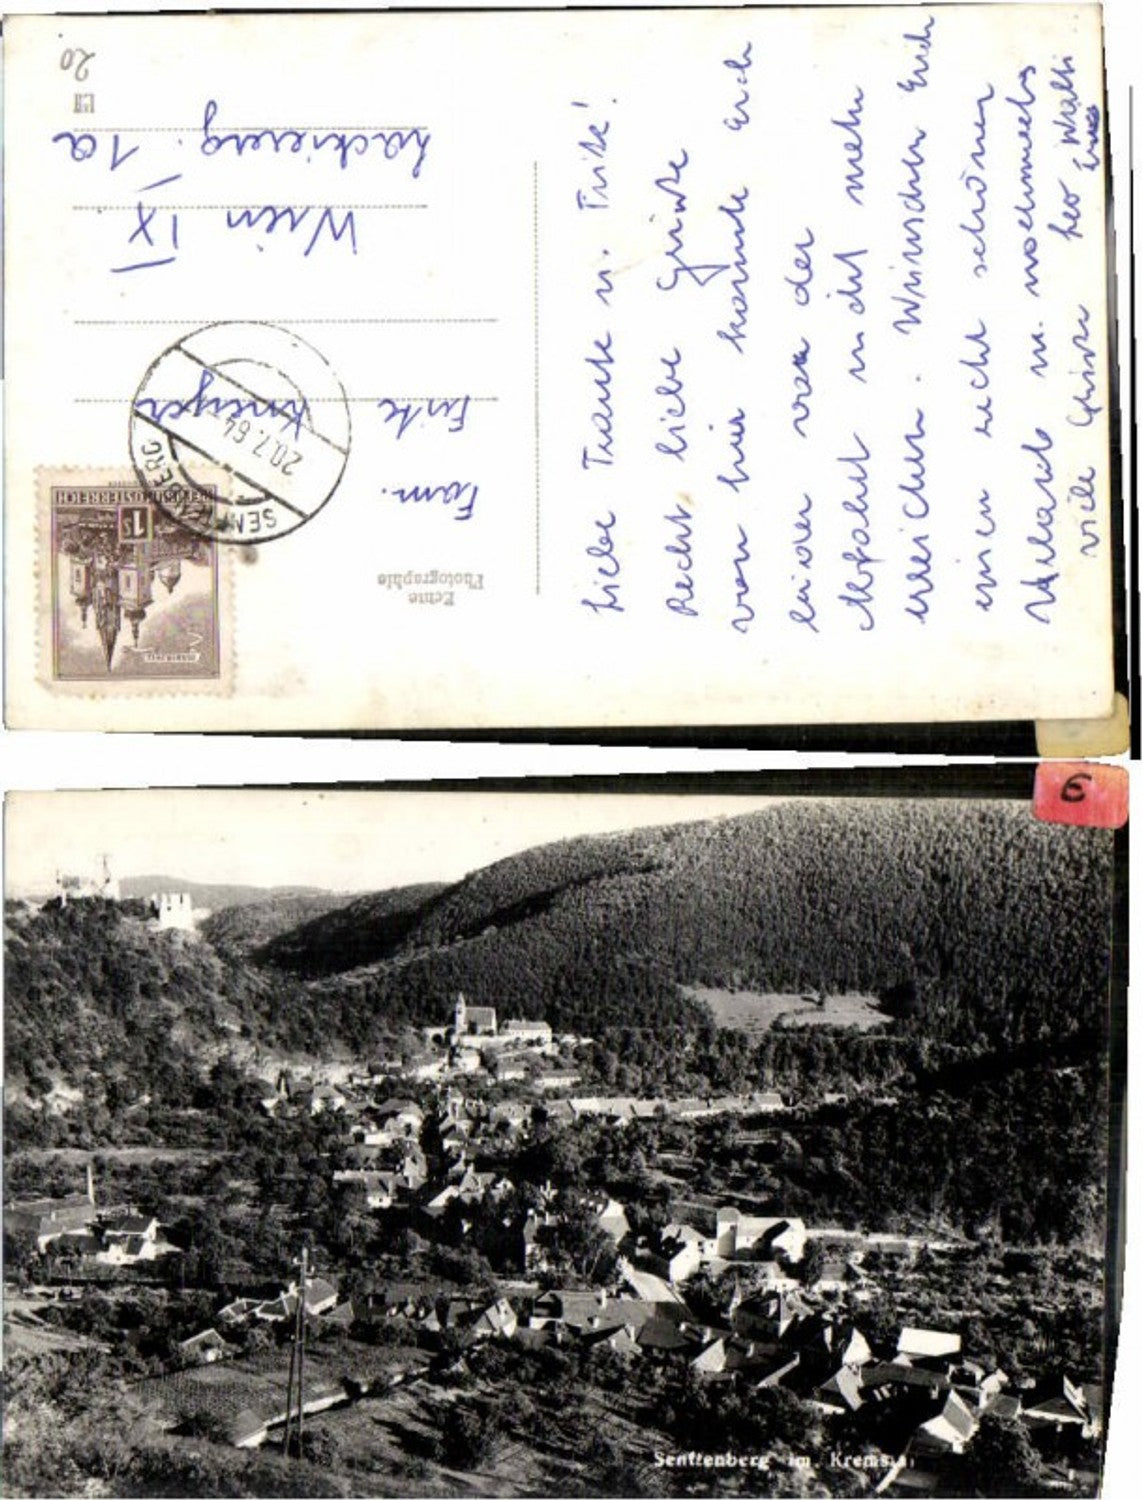 Liebe Traute u. Fritz!
Recht liebe Grüße
von hier konnte Euch
leider vor der
Abfahrt nicht mehr
erreichen. Wünschen Euch
einen recht schönen
Urlaub u. nochmals
viele Grüße Leo Walli
Echte
Photographie
Fam.
Fritz
Wien IX.
Lackiererg. 1a
20
REPUBLIK ÖSTERREICH
1s
MARIAZELL
SENFTENBERG
20.7.64
6
Senftenberg im Kremstal